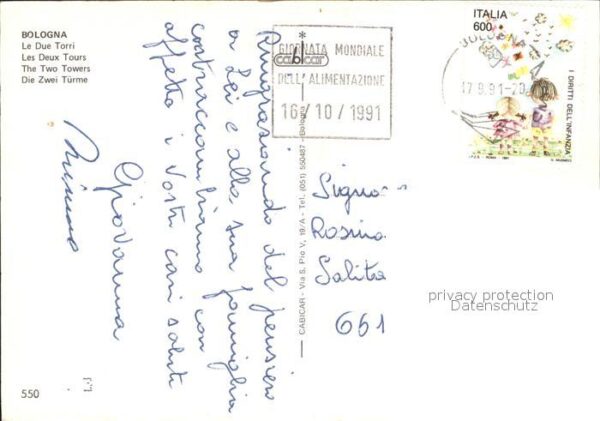 BOLOGNA
Le Due Torri
Les Deux Tours
The Two Towers
Die Zwei Türme
GIORNATA MONDIALE
cabicar
DELL'ALIMENTAZIONE
16/10/1991
ITALIA
600
BOLOGNA
17.9.91-20
I DIRITTI DELL'INFANZIA
I.P.Z.S. ROMA 1991
Ringraziando del pensiero
a Lei e alla sua famiglia
contraccambiamo con
affetto i Vostri cari saluti
Giovanna
CABICAR - Via S. Pio V, 19/A - Tel. (051) 550487 - Bologna
Signora
Rosina
Salita
661
privacy protection
Datenschutz
550